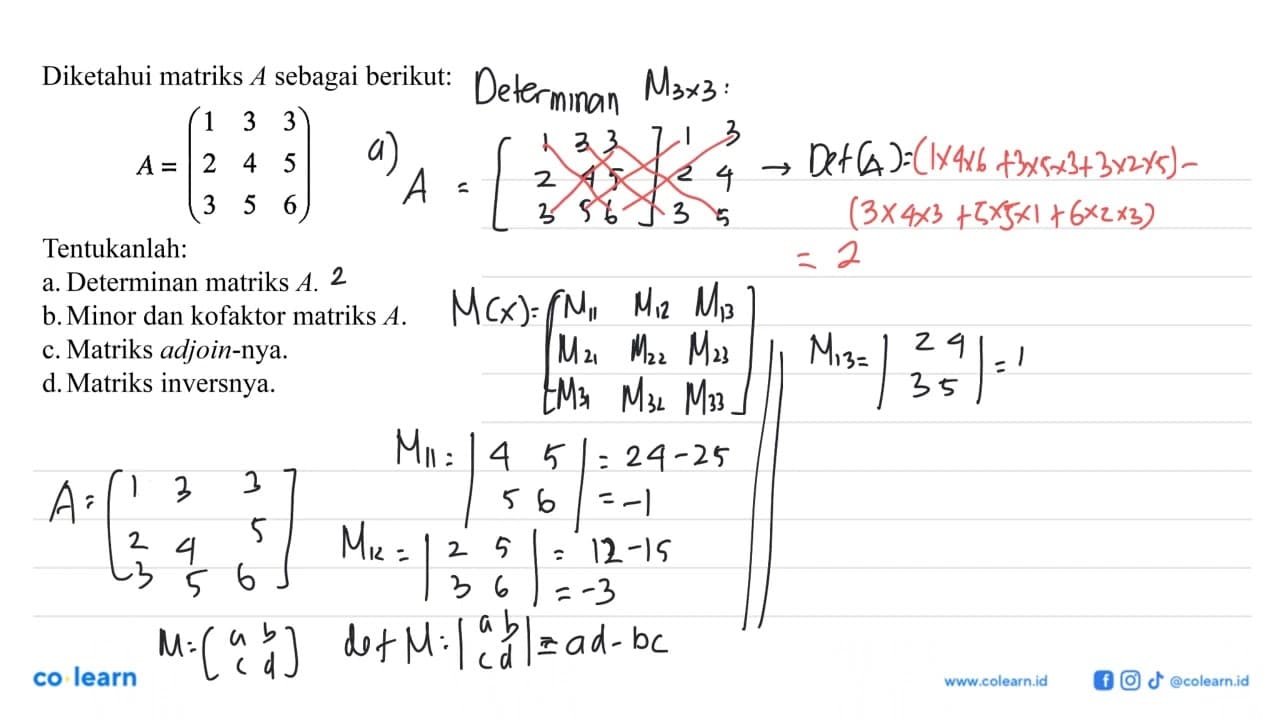 Diketahui matriks A sebagai berikut:
A = (1 3 3
2 4 5
3 5 6)
Tentukanlah:
a. Determinan matriks A. 2
b. Minor dan kofaktor matriks A.
c. Matriks adjoin-nya.
d. Matriks inversnya.
Determinan M3×3:
a) A = [1 3 3] 1 3
2 4 5 2 4
3 5 6 3 5
→ Det(A)=(1×4×6+3×5×3+3×2×5)-
(3×4×3+5×5×1+6×2×3)
= 2
M(x)=[M11 M12 M13
M21 M22 M23
M31 M32 M33]
M11=|4 5
5 6| = 24-25
= -1
M12=|2 5
3 6| = 12-15
= -3
M13=|2 4
3 5| = 1
A=[1 3 3
2 4 5
3 5 6]
M=[a b
c d]
det M=|a b
c d| = ad-bc
co learn
www.colearn.id
@colearn.id